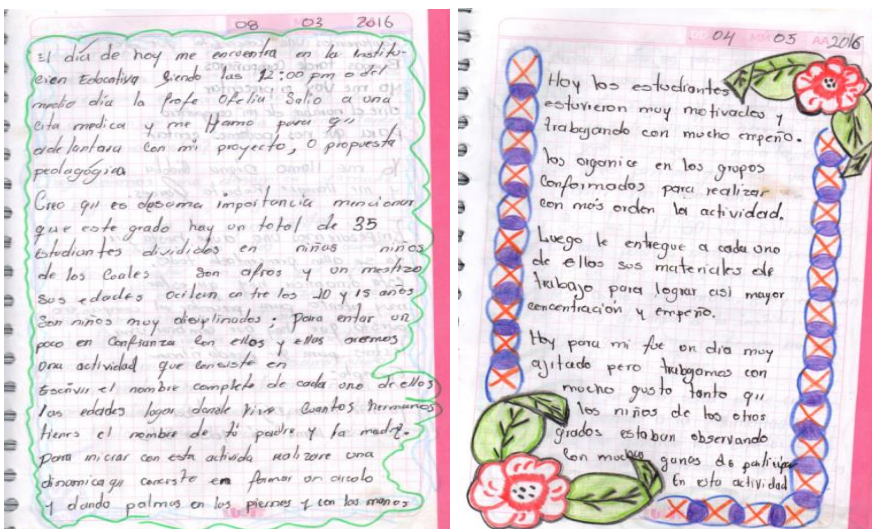 08 03 2016
El día de hoy me encuentra en la Institu-
cien Educativa Siendo las 12:00 pm o del
medio día la Profe Ofelia Salio a una
cita medica y me llamo para que
adelantara con mi proyecto, o propuesta
pedagógica
Creo qu es desuma importancia mincionar
que este grado hay un total de 35
estudiantes divididos en niñas niños
de los Cuales son afros y un mestizo
sus edades ocilan entre los 10 y 15 años
Son niños muy disiplinados; para entar un
poco en Confianza Con ellos y ellas aremos
una actividad que consiste en
Escrivir el nombre completo de cada uno de ellos
las edades logar donde vive Cuantos hermanos
tienes el nombre de tú padre y la madre.
para iniciar con esta activida realizare una
dinamica qu conciste en formar un circolo
y dando palmas en las piernas y con las manos
04 05 2016
Hoy los estudiantes
estuvieron muy motivados y
trabajando con mucho empeño.
los organice en los grupos
Conformados para realizar
con más orden la actividad.
Luego le entregue a cada uno
de ellos sus materiales de
trabajo para lograr asi mayor
concentración y empeño.
Hoy para mi fue un dia muy
ajitado pero trabajamos con
mucho gusto tanto qu
los niños de los otros
grados estaban observando
Con muchas ganas de participar
En esta actividad